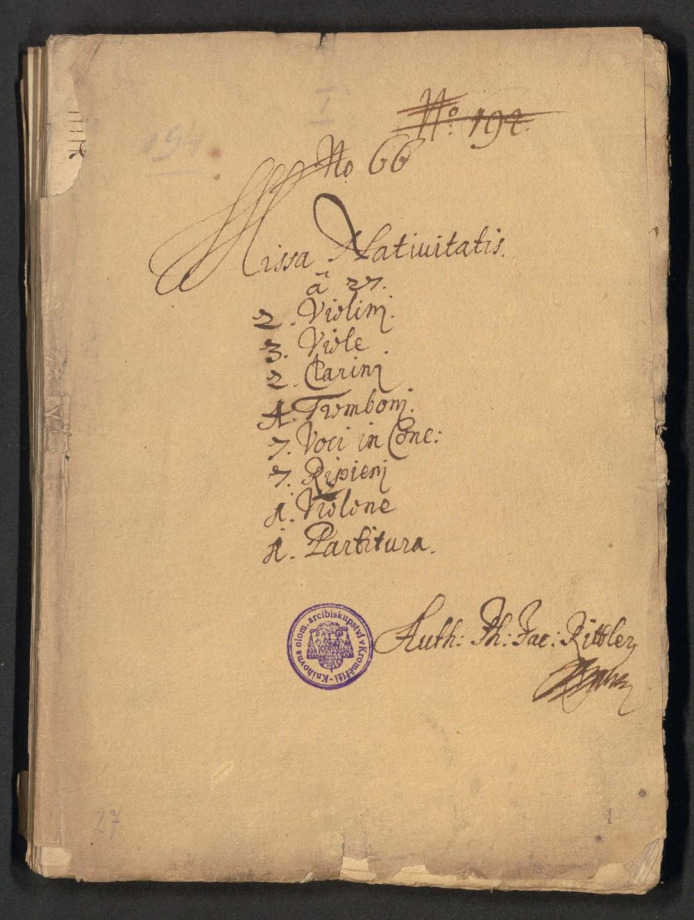 I
No. 192.
194
No 66
Missa Nativitatis.
â 27.
2. Violinj.
3. Viole
2. Clarinj
4. Trombonj.
7. Voci in Conc:
7. Ripienj
1. Violone
1. Partitura.
Knihovna olom. arcibiskupství v Kroměříži
Auth: Ph: Jac: Rittler
27
1